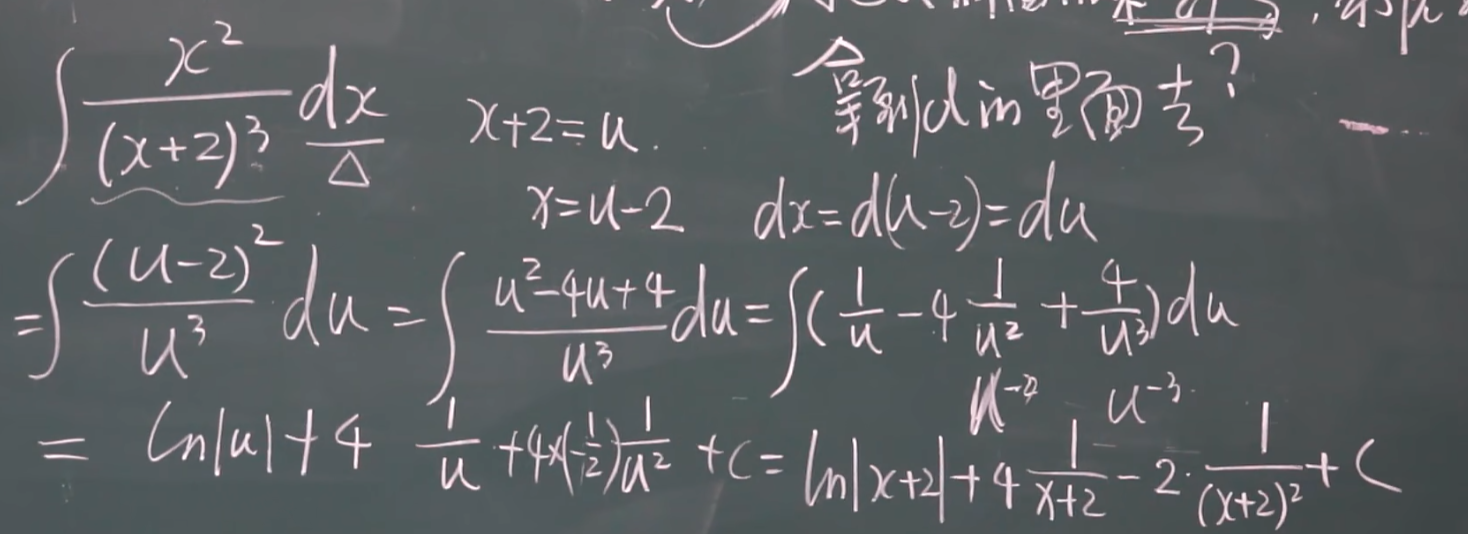 ∫ x²/(x+2)³ dx  x+2=u.  拿到d的里面去?
x=u-2  dx=d(u-2)=du
=∫ (u-2)²/u³ du = ∫ (u²-4u+4)/u³ du = ∫(1/u - 4 1/u² + 4/u³)du
u⁻² u⁻³
= ln|u| + 4 1/u + 4×(-1/2) 1/u² + C = ln|x+2| + 4 1/(x+2) - 2· 1/(x+2)² + C